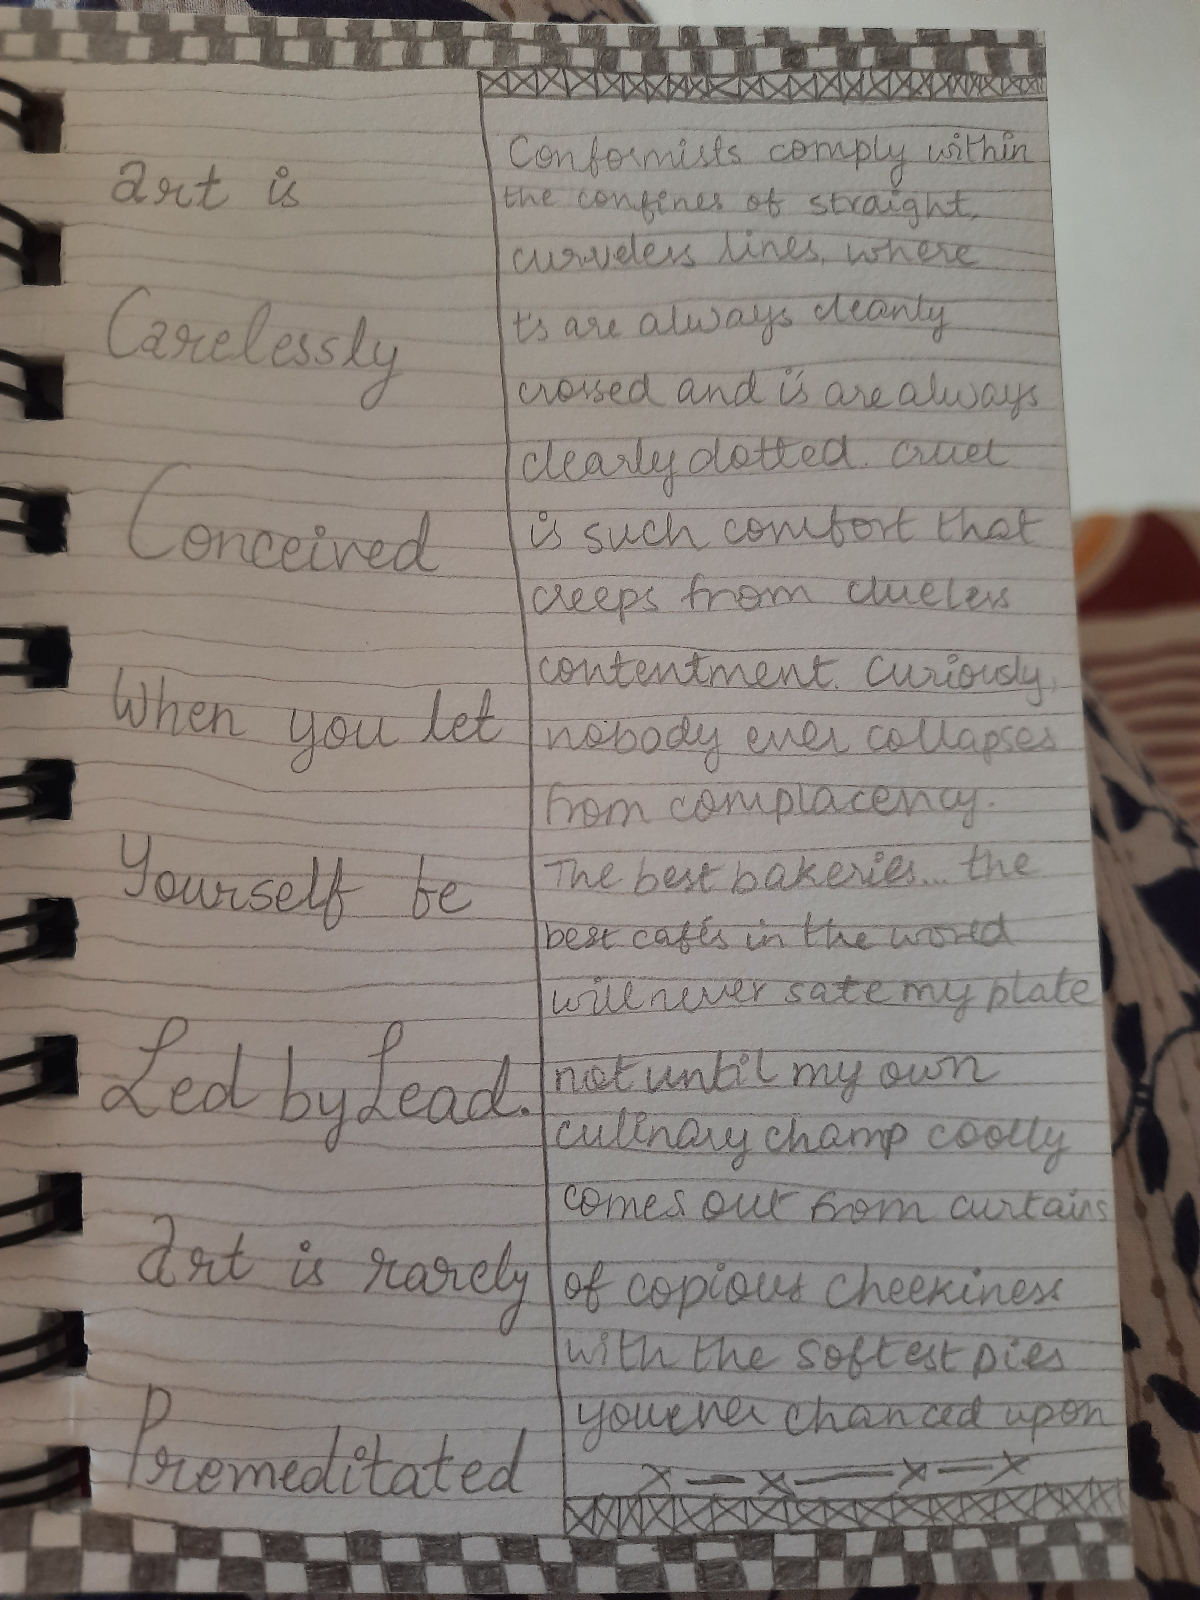 art is
Carelessly
Conceived
When you let
Yourself be
Led by Lead.
Art is rarely
Premeditated
Conformists comply within
the confines of straight,
curveless lines, where
t's are always cleanly
crossed and i's are always
clearly dotted. cruel
is such comfort that
creeps from clueless
contentment. Curiously,
nobody ever collapses
from complacency.
The best bakeries... the
best cafés in the world
will never sate my plate
not until my own
culinary champ coolly
comes out from curtains
of copious cheekiness
with the softest pies
you ever chanced upon